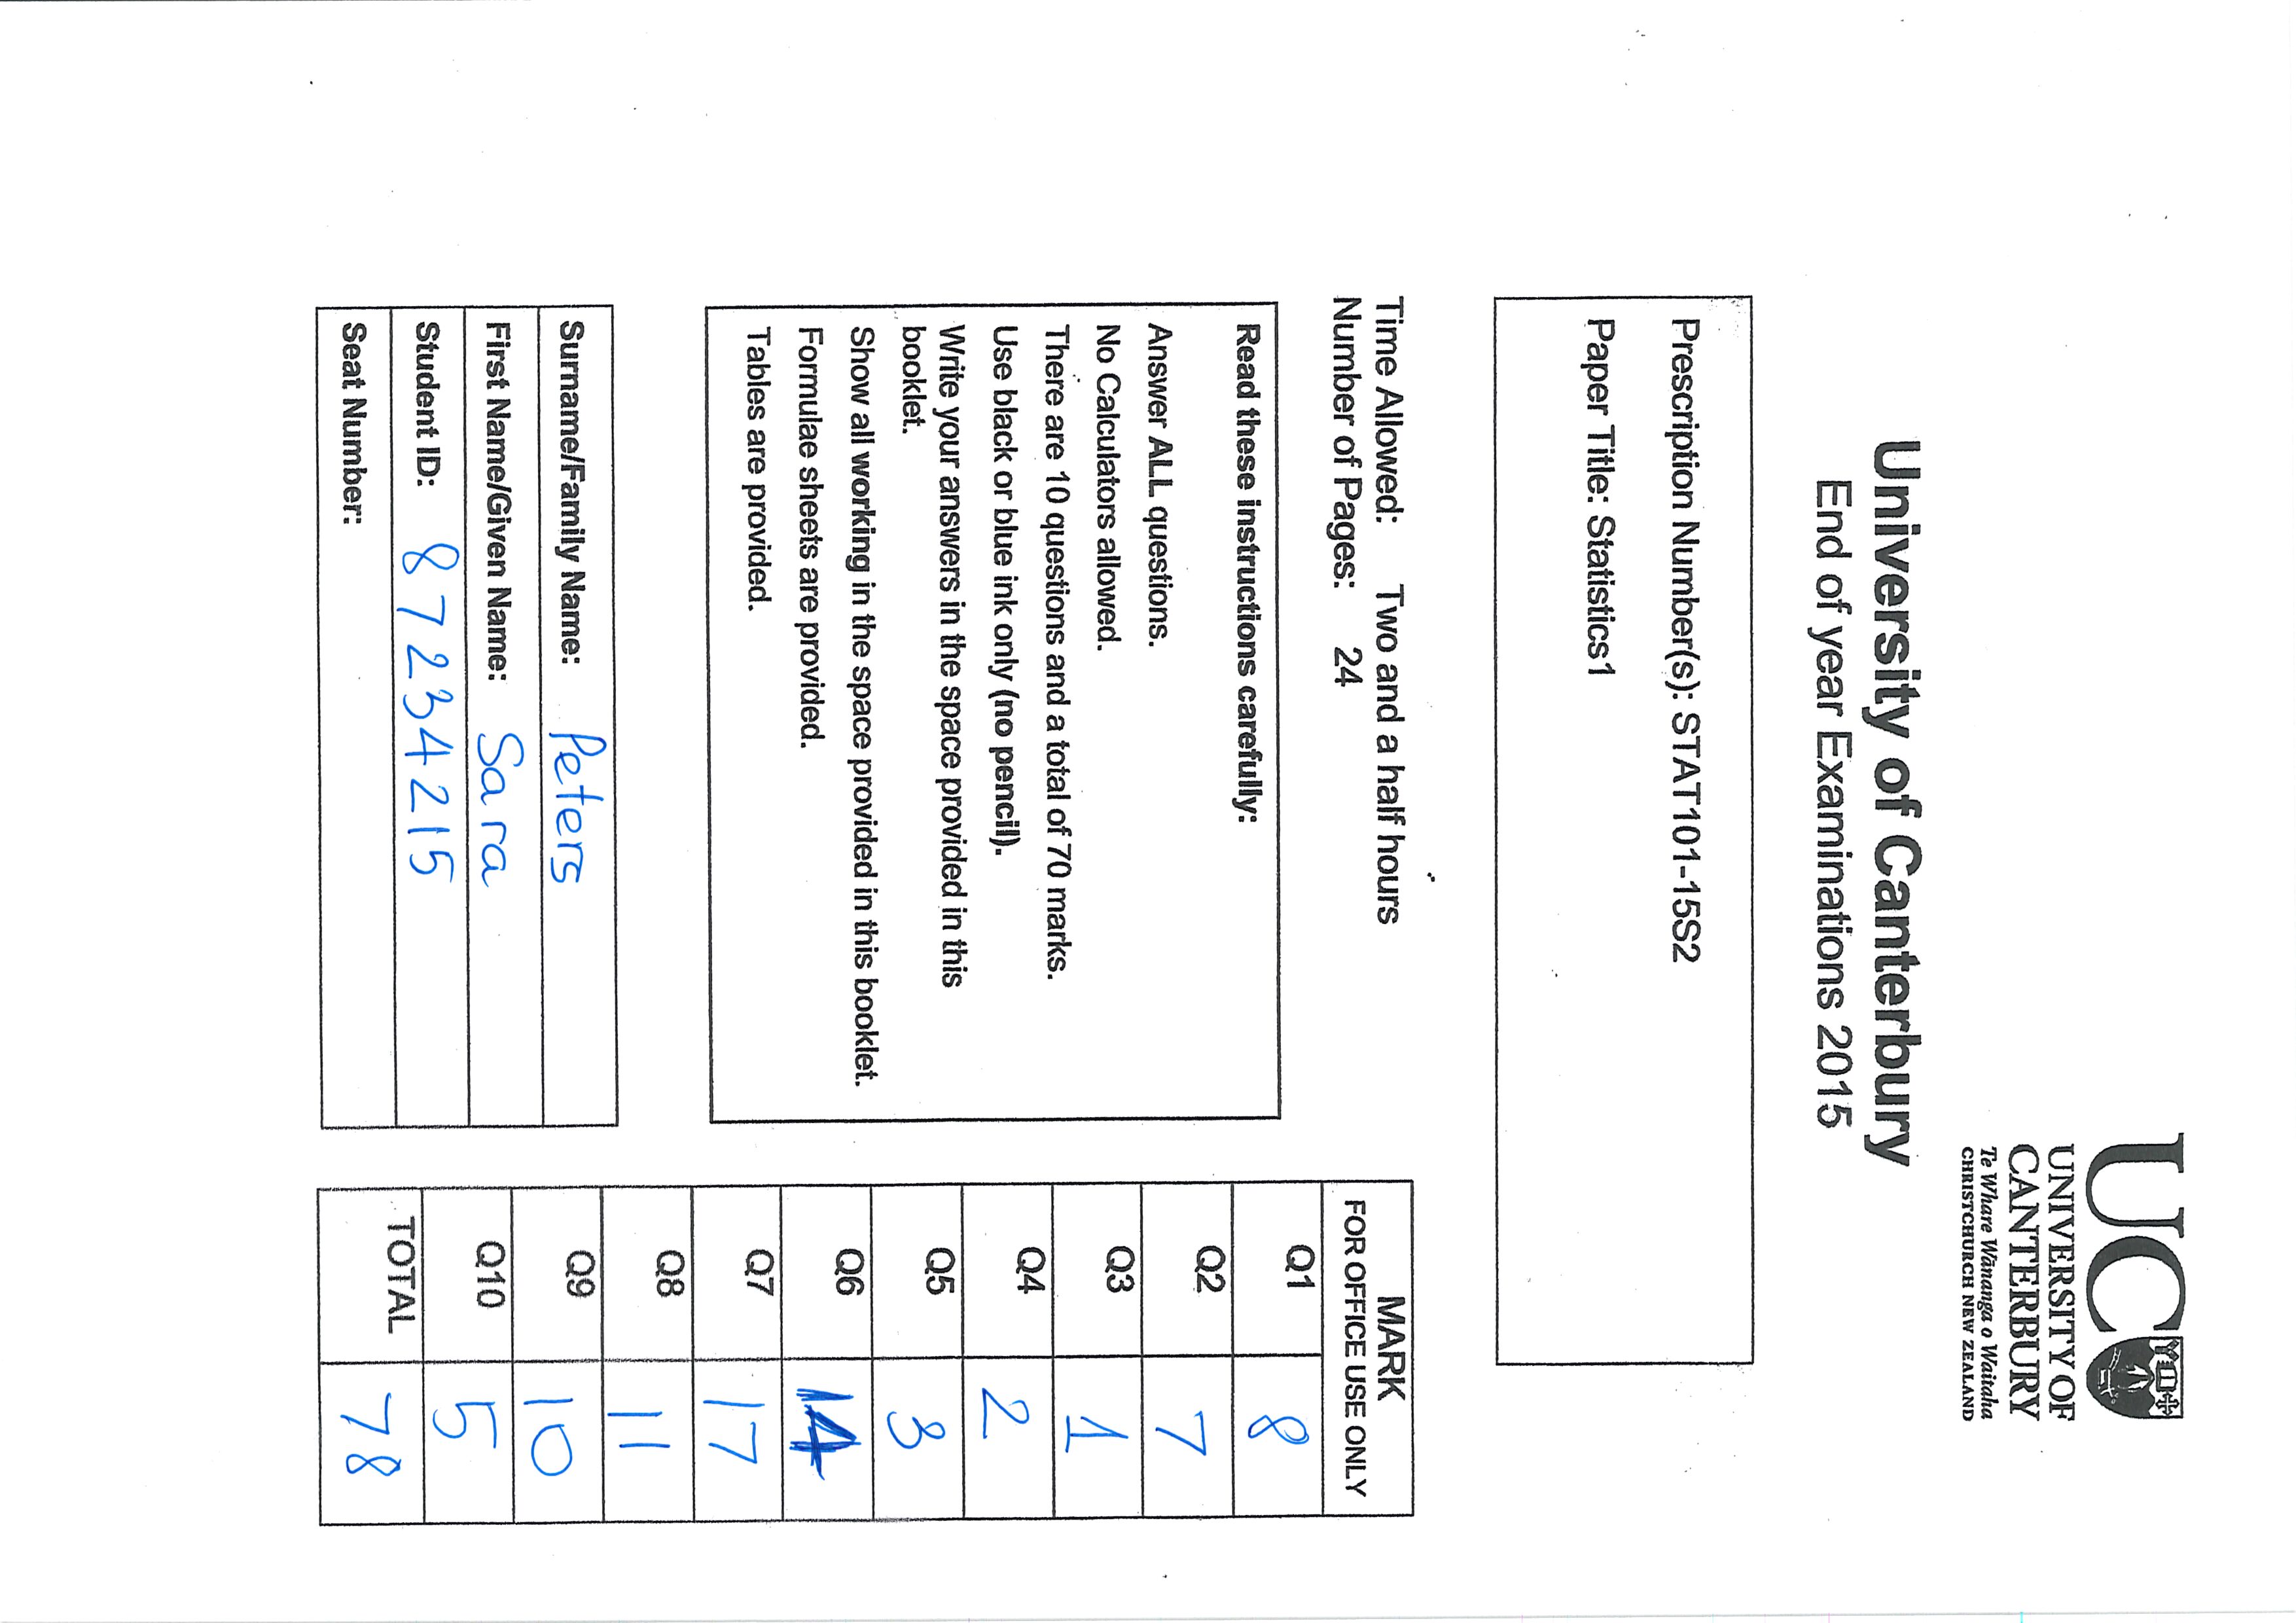 UC
UNIVERSITY OF
CANTERBURY
Te Whare Wānanga o Waitaha
CHRISTCHURCH NEW ZEALAND
University of Canterbury
End of year Examinations 2015
Prescription Number(s): STAT101-15S2
Paper Title: Statistics1
Time Allowed: Two and a half hours
Number of Pages: 24
Read these instructions carefully:
Answer ALL questions.
No Calculators allowed.
There are 10 questions and a total of 70 marks.
Use black or blue ink only (no pencil).
Write your answers in the space provided in this
booklet.
Show all working in the space provided in this booklet.
Formulae sheets are provided.
Tables are provided.
Surname/Family Name: Peters
First Name/Given Name: Sara
Student ID: 87234215
Seat Number:
MARK
FOR OFFICE USE ONLY
Q1 8
Q2 7
Q3 1
Q4 2
Q5 3
Q6 14
Q7 17
Q8 11
Q9 10
Q10 5
TOTAL 78